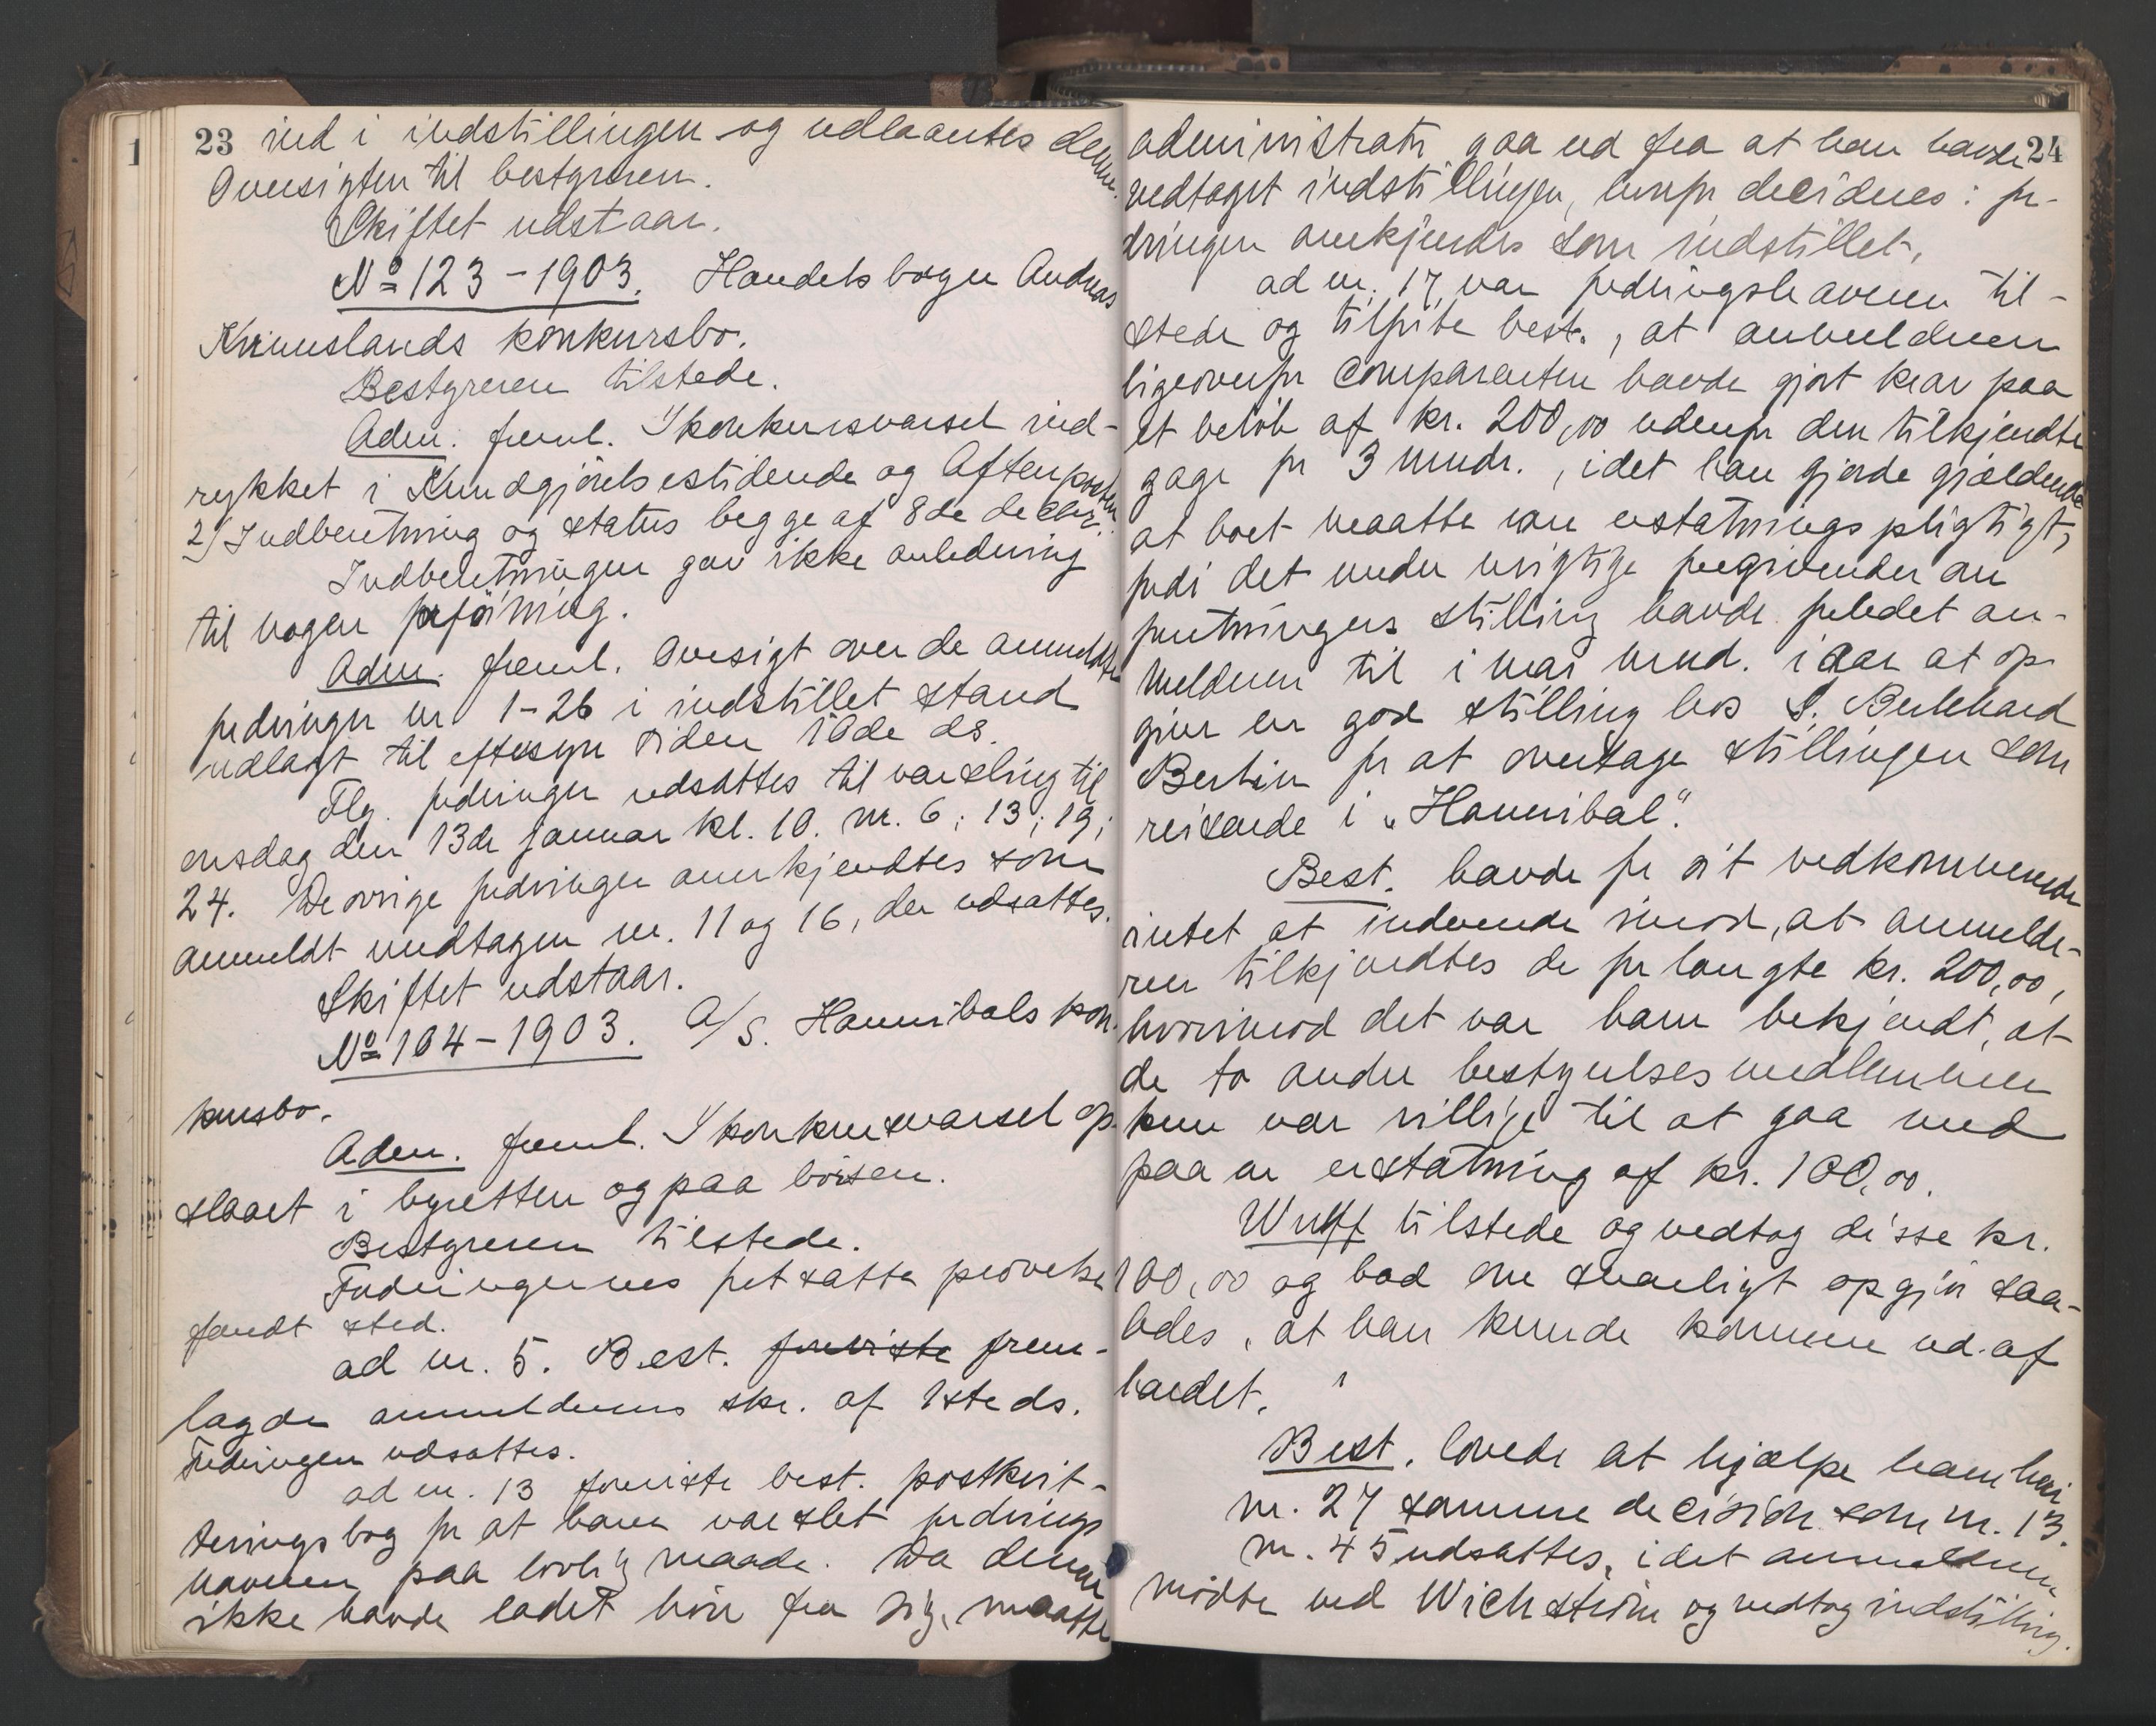 1
23 ind i indstillingen og udlaantes denne
Oversigten til bestyreren.
Skiftet udstaar.
No 123-1903. Handelsborger Andreas
Krimslands konkursbo.
Bestyreren tilstede.
Adm. freml. 1/ konkursvarsel ind-
rykket i Kundgjörelsestidende og Aftenposten
2/ Indberetning og status begge af 8de decbr.
Indberetningen gav ikke anledning
til nogen paaföining.
Adm. freml. Oversigt over de anmeldte
fordringer nr 1-26 i indstillet stand
udlagt til eftersyn siden 10de ds.
Flg. fordringer udsattes til varsling til
onsdag den 13de januar kl. 10. nr. 6; 13; 19;
24. De övrige fordringer anerkjendtes som
anmeldt undtagen nr. 11 og 16, der udsattes.
Skiftet udstaar.
No 104-1903. A/S. Hannibals kon-
kursbo.
Adm. freml. 1/ konkursvarsel op-
slaaet i byretten og paa börsen.
Bestyreren tilstede.
Fordringernes fortsatte prövelse
fandt sted.
ad nr. 5. Best. foreviste frem-
lagde anmelderens skr. af 1ste ds.
Fordringen udsattes.
ad nr. 13 foreviste best. postkvit-
teringsbog for at have varslet fordrings-
haveren paa lovlig maade. Da denne
ikke havde ladet höre fra sig, maatte
24
administrator gaa ud fra at han havde
vedtaget indstillingen, hvorfor decideres: for-
dringen anerkjendes som indstillet.
ad nr. 17 var fordringshaveren til-
stede og tilföiede best., at anmelderen
ligeoverfor Comparenten havde gjort krav paa
et belöb af kr. 200,00 udenfor den tilkjendte
gage for 3 mndr., idet han gjorde gjældende
at boet maatte være erstatningspligtigt,
fordi det under urigtige foregivender om
forretningens stilling havde forledet an-
melderen til i mai mnd. iaar at op-
give en god stilling hos S. Bernhard
Berlin for at overtage stillingen som
reisende i „Hannibal".
Best. havde for sit vedkommende
intet at indvende imod, at anmelde-
ren tilkjendtes de forlangte kr. 200,00,
hvorimod det var ham bekjendt, at
de to andre bestyrelsesmedlemmer
kun var villige til at gaa med
paa en erstatning af kr. 100,00.
Wulff tilstede og vedtog disse kr.
100,00 og bad om snarligt opgjör saa-
ledes, at han kunde komme ud af
landet.
Best. lovede at hjælpe ham heri.
nr. 27 samme decision som nr. 13.
nr. 45 udsattes, idet anmelderen
mödte ved Wichström og vedtog indstilling.